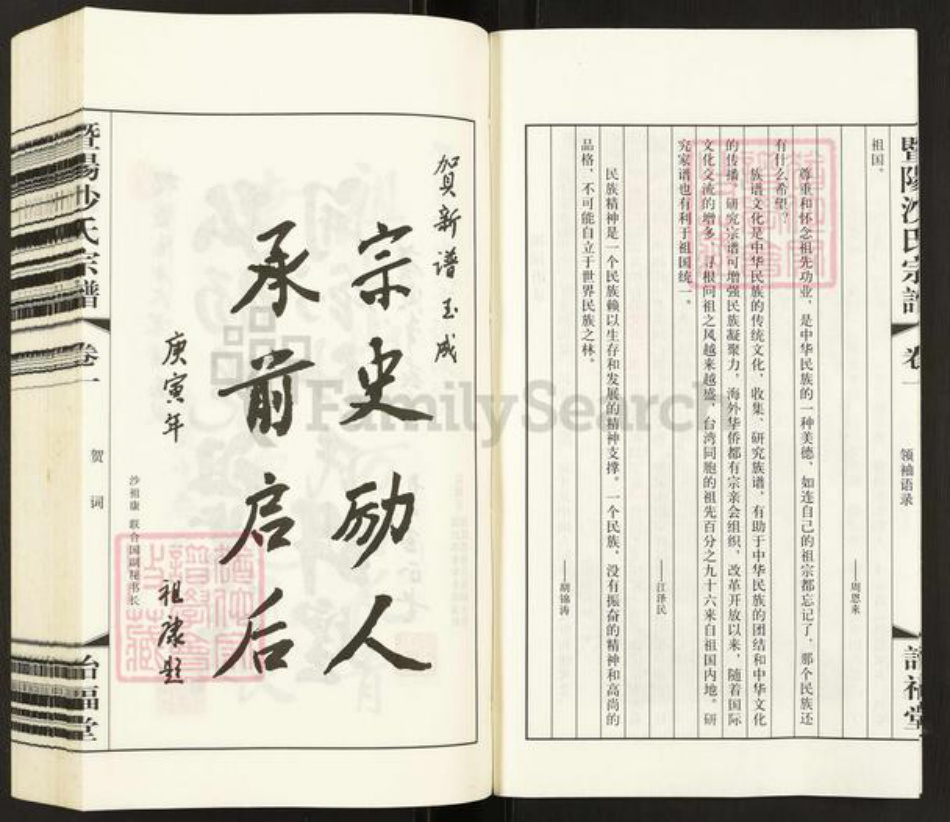 祖国。
——周恩来
尊重和怀念祖先功业，是中华民族的一种美德，如连自己的祖宗都忘记了，那个民族还
有什么希望？
族谱文化是中华民族的传统文化，收集、研究族谱，有助于中华民族的团结和中华文化
的传播，研究宗谱可增强民族凝聚力，海外华侨都有宗亲会组织，改革开放以来，随着国际
文化交流的增多，寻根问祖之风越来越盛，台湾同胞的祖先百分之九十六来自祖国内地。研
究家谱也有利于祖国统一。
——江泽民
民族精神是一个民族赖以生存和发展的精神支撑。一个民族，没有振奋的精神和高尚的
品格，不可能自立于世界民族之林。
——胡锦涛
领袖语录
贺新谱玉成
宗史励人
承前启后
庚寅年
祖康题
沙祖康 联合国副秘书长
暨阳沙氏宗谱
卷一
贺词
FamilySearch